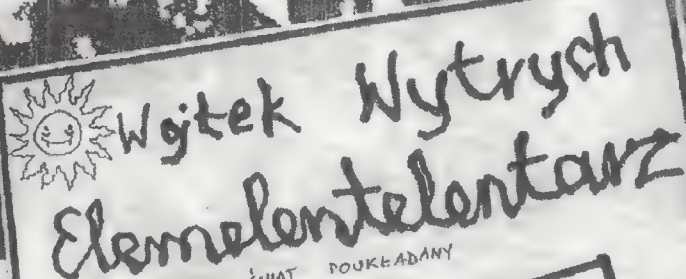 Wojtek Wytrych
Elemelentelentarz
ŚWIAT POUKŁADANY